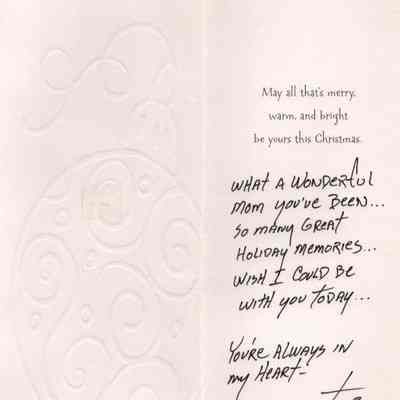 May all that's merry,
warm, and bright
be yours this Christmas.
WHAT A WONDERFUL
MOM YOU'VE BEEN...
SO MANY GREAT
HOLIDAY MEMORIES...
WISH I COULD BE
WITH YOU TODAY...
YOU'RE ALWAYS IN
MY HEART-